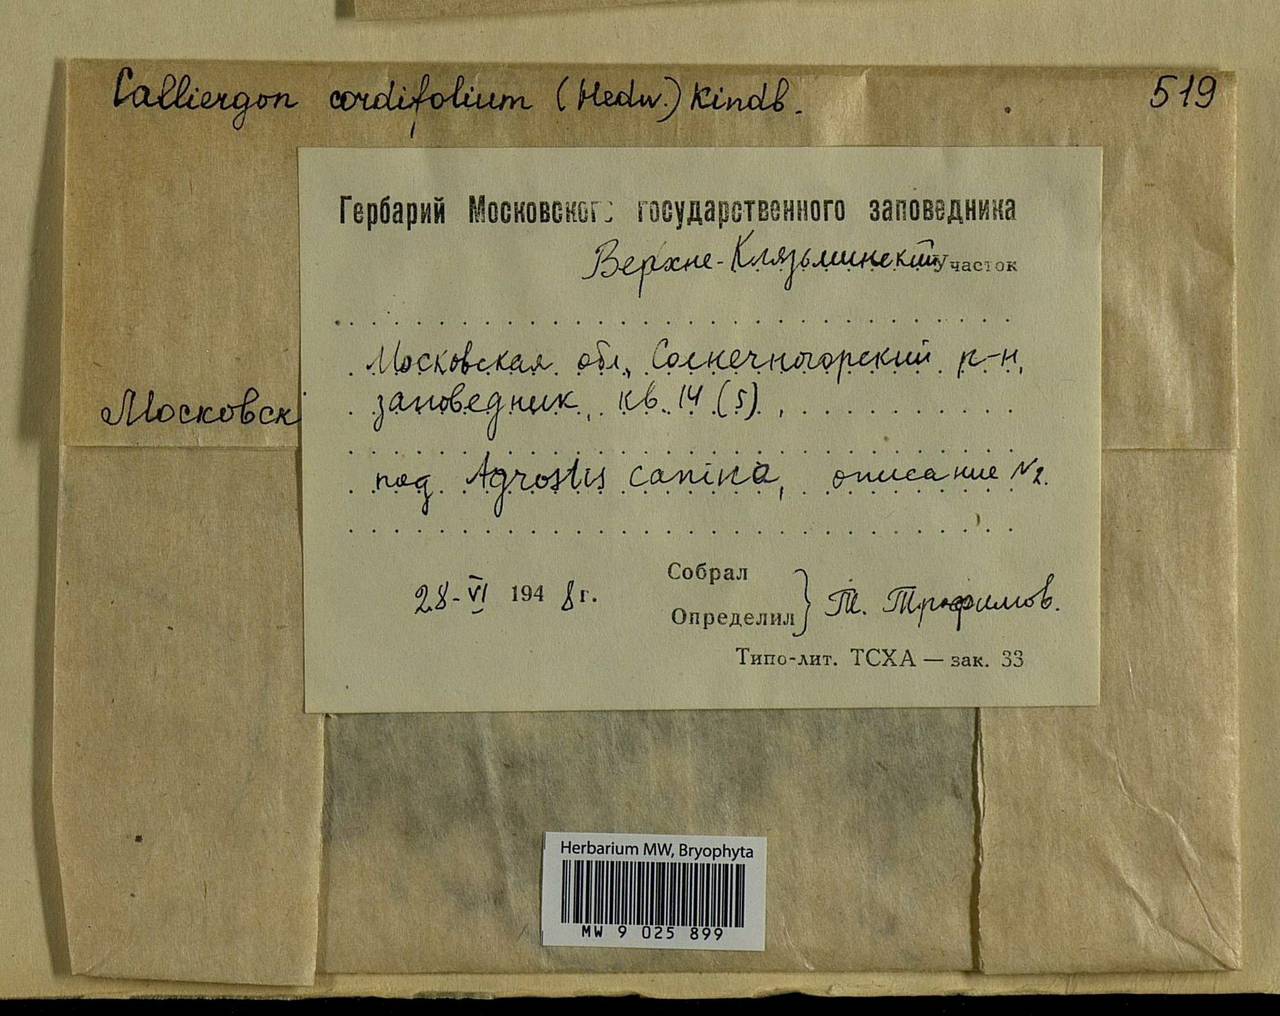 Calliergon cordifolium (Hedw.) Kindb. 519
Гербарий Московског государственного заповедника
Верхне-Клязьминский участок
Московская обл., Солнечногорский р-н,
Московск
заповедник, кв. 14 (5),
под Agrostis canina, описание №2.
28-VI 1948 г.
Собрал
Определил } Т. Трофимов.
Типо-лит. ТСХА — зак. 33
Herbarium MW, Bryophyta
MW 9 025 899